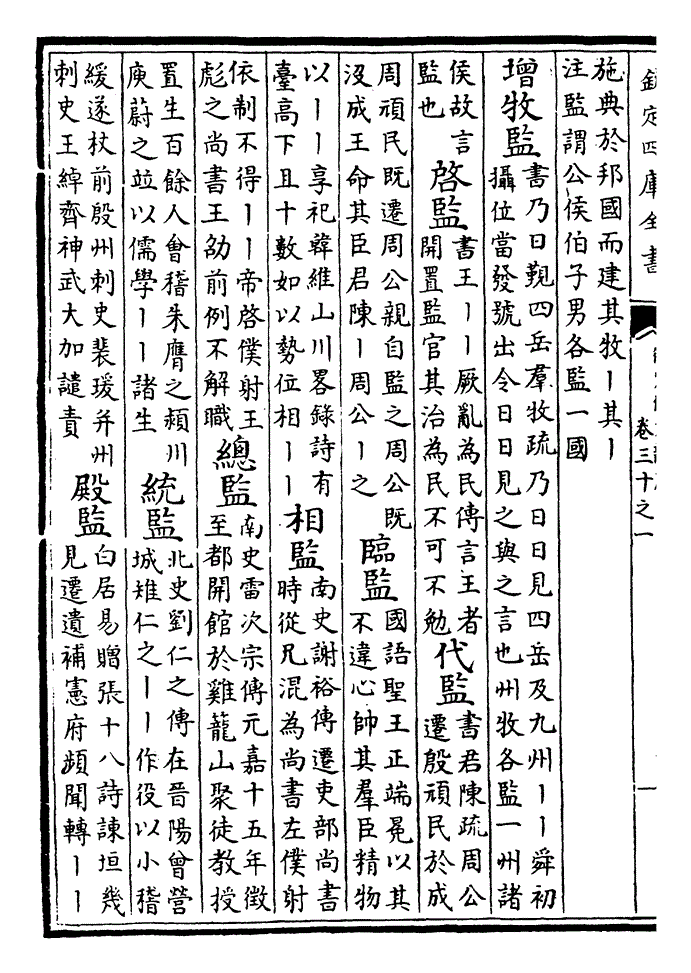 欽定四庫全書
卷三十之一
施典於邦國而建其牧丨其丨
注監謂公侯伯子男各監一國
增牧監
書乃日覲四岳羣牧疏乃日日見四岳及九州丨丨舜初
攝位當發號出令日日見之與之言也州牧各監一州諸
侯故言
監也
啓監
書王丨丨厥亂為民傳言王者
開置監官其治為民不可不勉
代監
書君陳疏周公
遷殷頑民於成
周頑民既遷周公親自監之周公既
沒成王命其臣君陳丨周公丨之
臨監
國語聖王正端冕以其
不違心帥其羣臣精物
以丨丨享祀韓維山川畧錄詩有
臺高下且十數如以勢位相丨丨
相監
南史謝裕傳遷吏部尚書
時從兄混為尚書左僕射
依制不得丨丨帝啓僕射王
彪之尚書王劭前例不解職
總監
南史雷次宗傳元嘉十五年徵
至都開館於雞籠山聚徒教授
置生百餘人會稽朱膺之潁川
庾蔚之並以儒學丨丨諸生
統監
北史劉仁之傳在晉陽曾營
城雉仁之丨丨作役以小稽
緩遂杖前殷州刺史裴瑗并州
刺史王綽齊神武大加譴責
殿監
白居易贈張十八詩諫垣幾
見遷遺補憲府頻聞轉丨丨